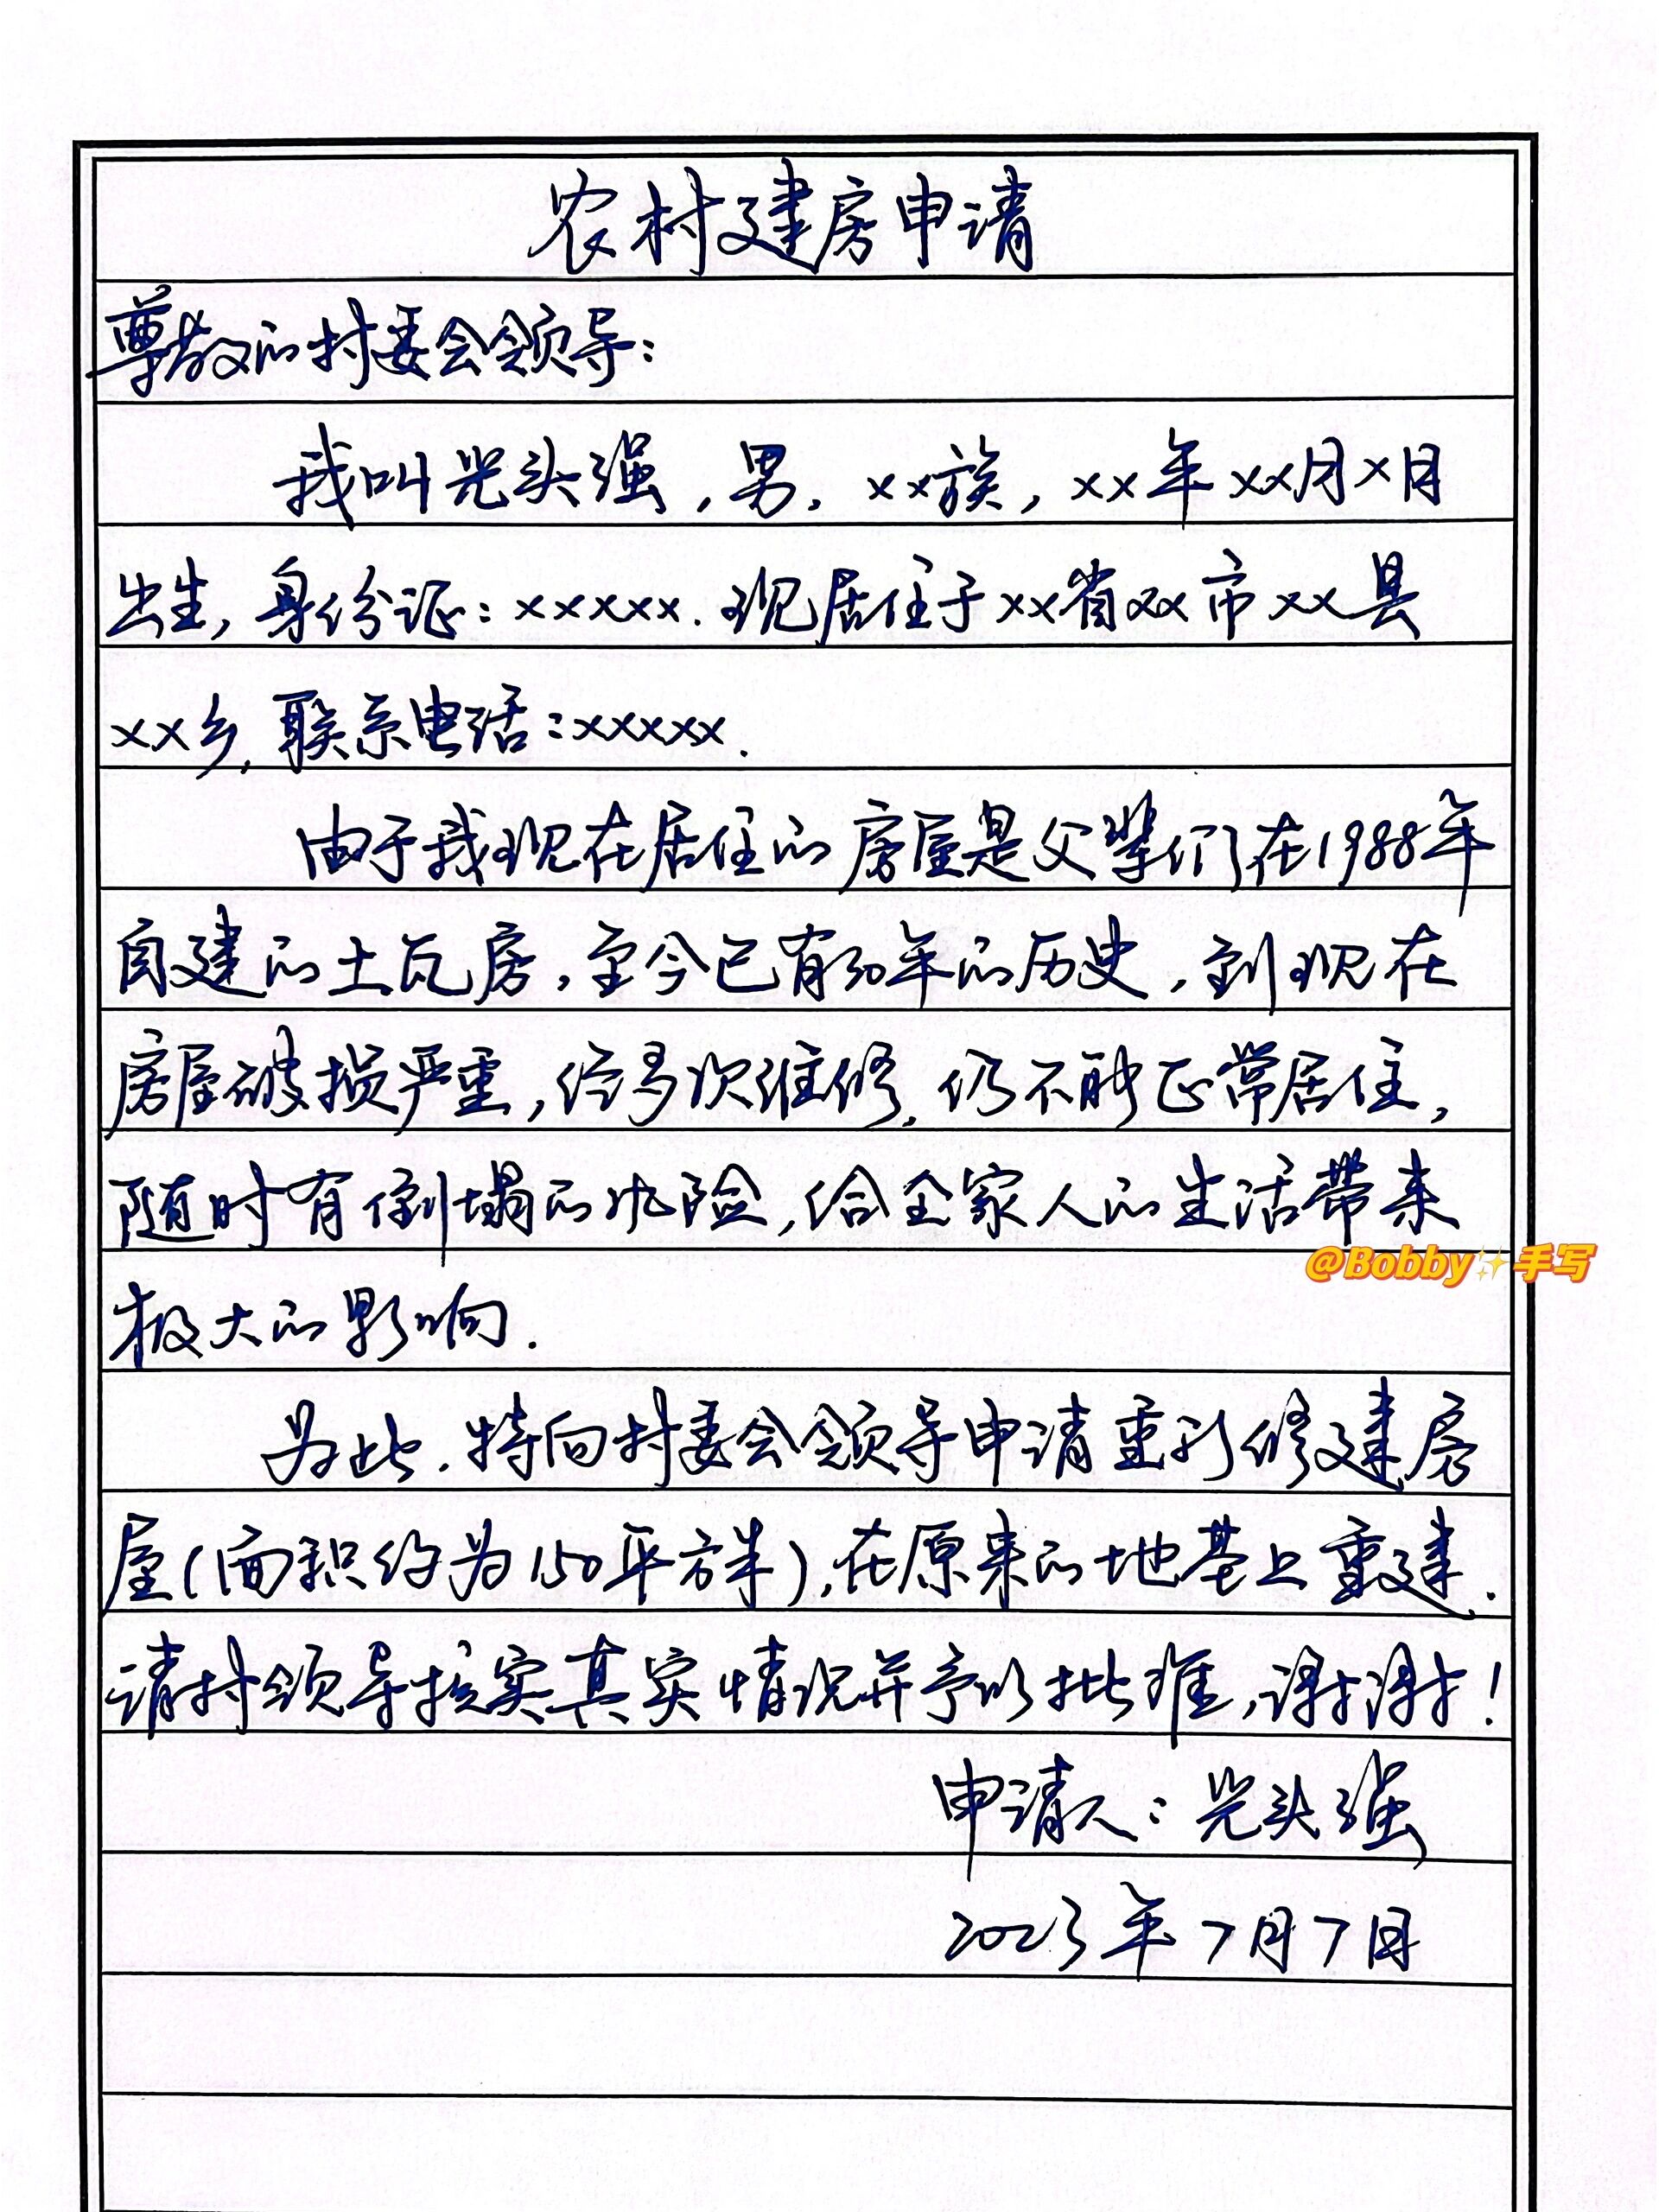 农村建房申请
尊敬的村委会领导：
我叫光头强，男，xx族，xx年xx月x日
出生，身份证：xxxxx.现居住于xx省xx市xx县
xx乡，联系电话：xxxxx.
由于我现在居住的房屋是父辈们在1988年
自建的土瓦房，至今已有30年的历史，到现在
房屋破损严重，经多次维修，仍不能正常居住，
随时有倒塌的风险，给全家人的生活带来
@Bobby✨手写
极大的影响.
为此，特向村委会领导申请重新修建房
屋(面积约为150平方米)，在原来的地基上重建.
请村领导核实真实情况并予以批准，谢谢！
申请人：光头强
2023年7月7日